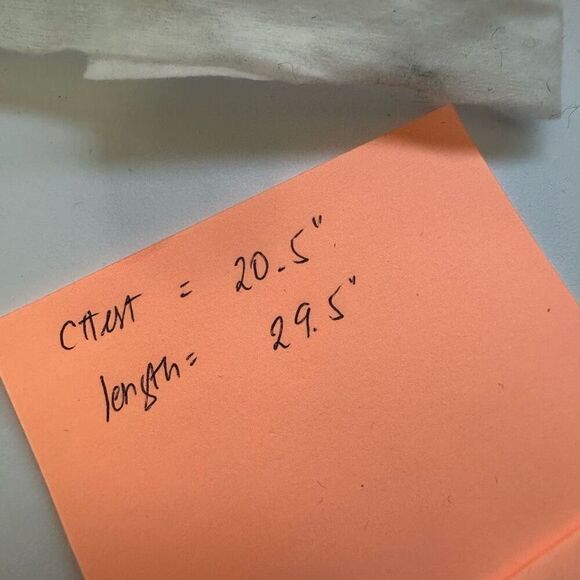 Chest = 20.5"
length = 29.5"